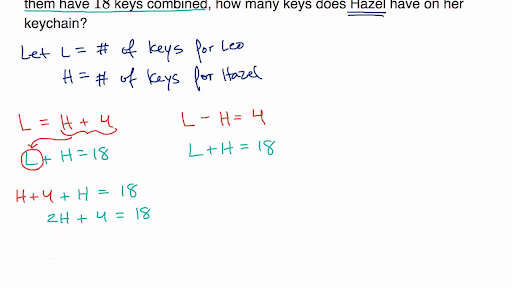 them have 18 keys combined, how many keys does Hazel have on her
keychain?
Let L = # of keys for Leo
H = # of keys for Hazel
L = H + 4
L - H = 4
L + H = 18
L + H = 18
H + 4 + H = 18
2H + 4 = 18